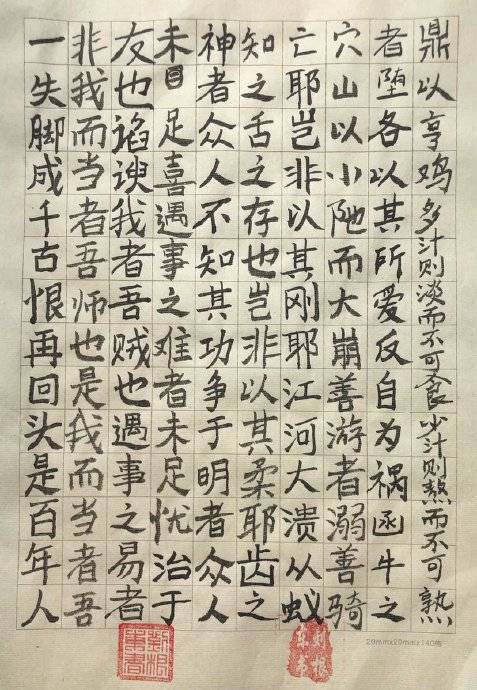 鼎以亨鸡多汁则淡而不可食少汁则熬而不可熟
者堕各以其所爱反自为祸函牛之
穴山以小阤而大崩善游者溺善骑
亡耶岂非以其刚耶江河大溃从蚁
知之舌之存也岂非以其柔耶齿之
神者众人不知其功争于明者众人
未足喜遇事之难者未足忧治于
友也谄谀我者吾贼也遇事之易者
非我而当者吾师也是我而当者吾
一失脚成千古恨再回头是百年人
20mm×20mm×140格